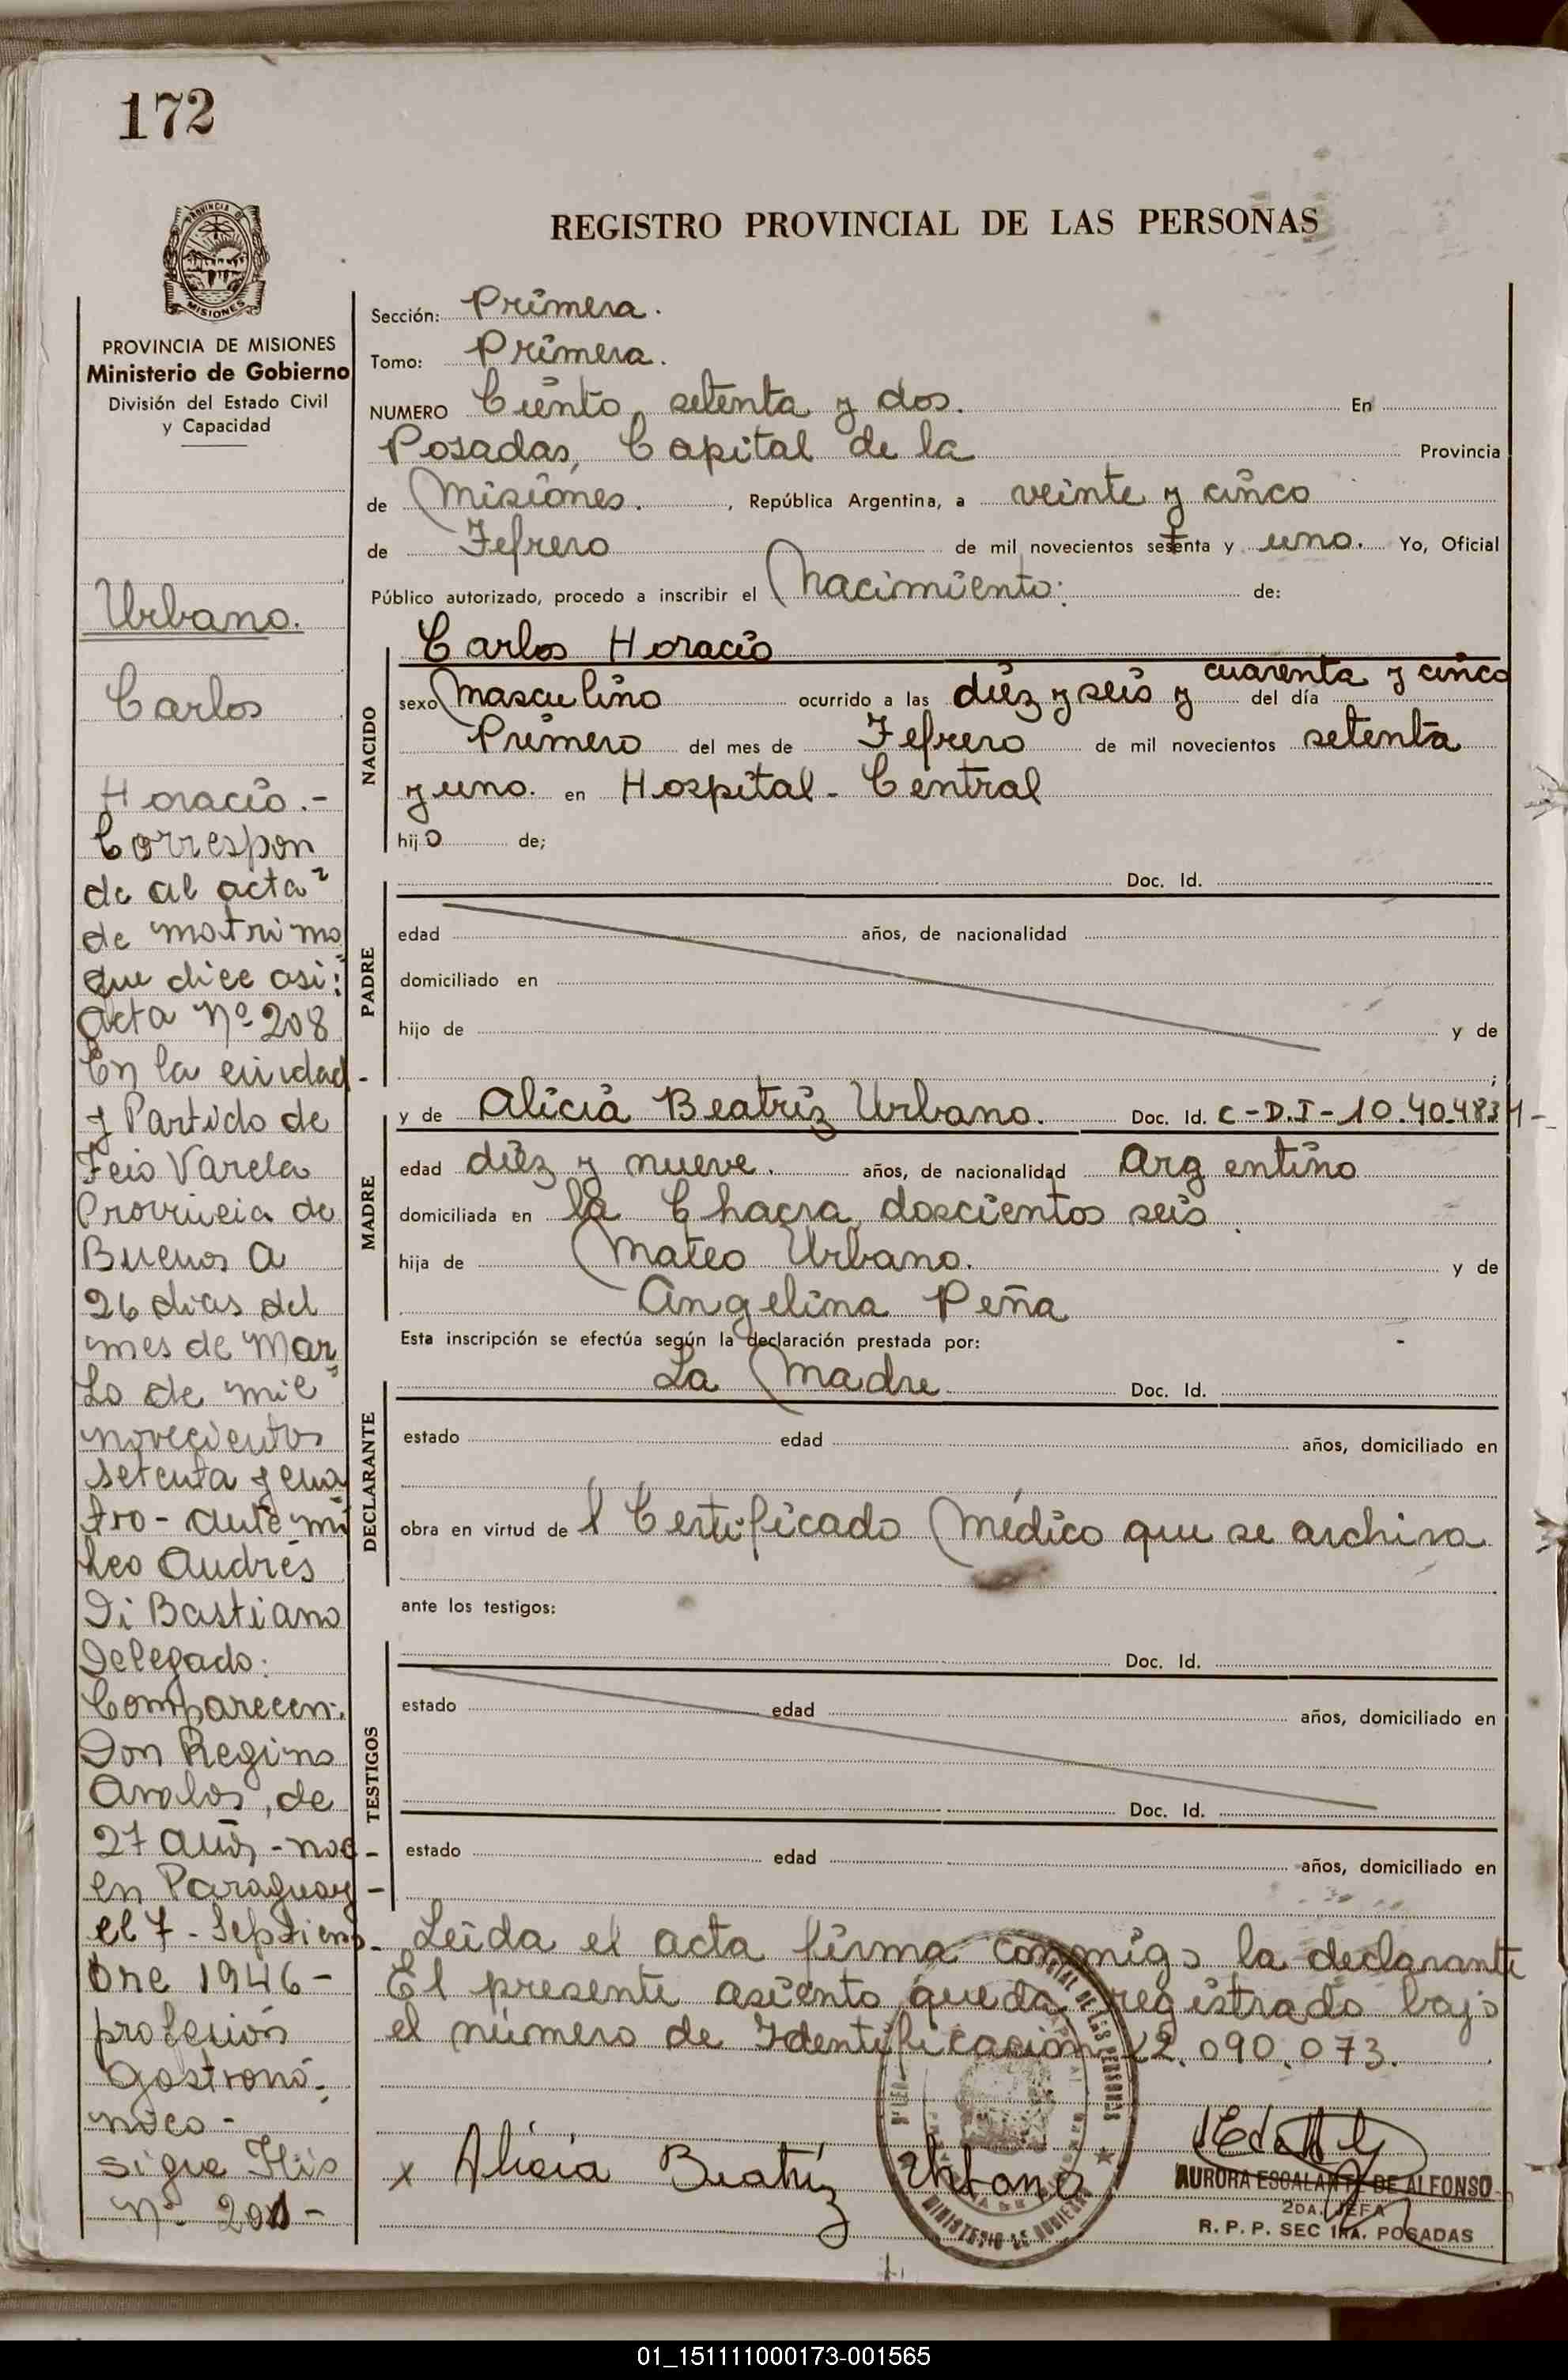 172
PROVINCIA DE
MISIONES
PROVINCIA DE MISIONES
Ministerio de Gobierno
División del Estado Civil
y Capacidad
Urbano.
Carlos
Horacio.-
Correspon
de al acta
de matrimo
que dice asi:
acta Nº 208
En la ciudad -
y Partido de
Fcio Varela
Provincia de
Buenos A
26 dias del
mes de Mar
zo de mil
novecientos
setenta y cua
tro - ante mi
Leo Andrés
Di Bastiano
Delegado:
Comparecen:
Don Regino
Avalos, de
27 años - nac -
en Paraguay -
el 7 - Septiem -
bre 1946 -
profesión
Gastronó-
mico -
sigue Flio
Nº 201 -
REGISTRO PROVINCIAL DE LAS PERSONAS
Sección: Primera.
Tomo: Primera.
NUMERO Ciento, setenta y dos. En
Posadas, Capital de la Provincia
de Misiones. , República Argentina, a veinte y cinco
de Fefrero de mil novecientos setenta y uno. Yo, Oficial
Público autorizado, procedo a inscribir el Nacimiento: de:
NACIDO
Carlos Horacio
sexo Masculino ocurrido a las diez y seis y cuarenta y cinco del día
Primero del mes de Fefrero de mil novecientos setenta
y uno. en Hospital - Central
hijo de;
PADRE
Doc. Id.
edad años, de nacionalidad
domiciliado en
hijo de y de
;
MADRE
y de Alicia Beatriz Urbano. Doc. Id. C-D.I-10.40.4834-
edad diez y nueve. años, de nacionalidad Argentino
domiciliada en la Chacra doscientos seis.
hija de Mateo Urbano. y de
Angelina Peña
Esta inscripción se efectúa según la declaración prestada por:
DECLARANTE
La Madre Doc. Id.
estado edad años, domiciliado en
obra en virtud de l Certificado Médico que se archiva
ante los testigos:
TESTIGOS
Doc. Id.
estado edad años, domiciliado en
Doc. Id.
estado edad años, domiciliado en
Leida el acta firma conmigo la declarante
El presente asiento queda registrado bajo
el número de Identificación 22.090.073.
x Alicia Beatriz Urbano
MINISTERIO DE GOBIERNO
AURORA ESCALANTE DE ALFONSO
2DA. JEFA
R. P. P. SEC 1RA. POSADAS
01_151111000173-001565